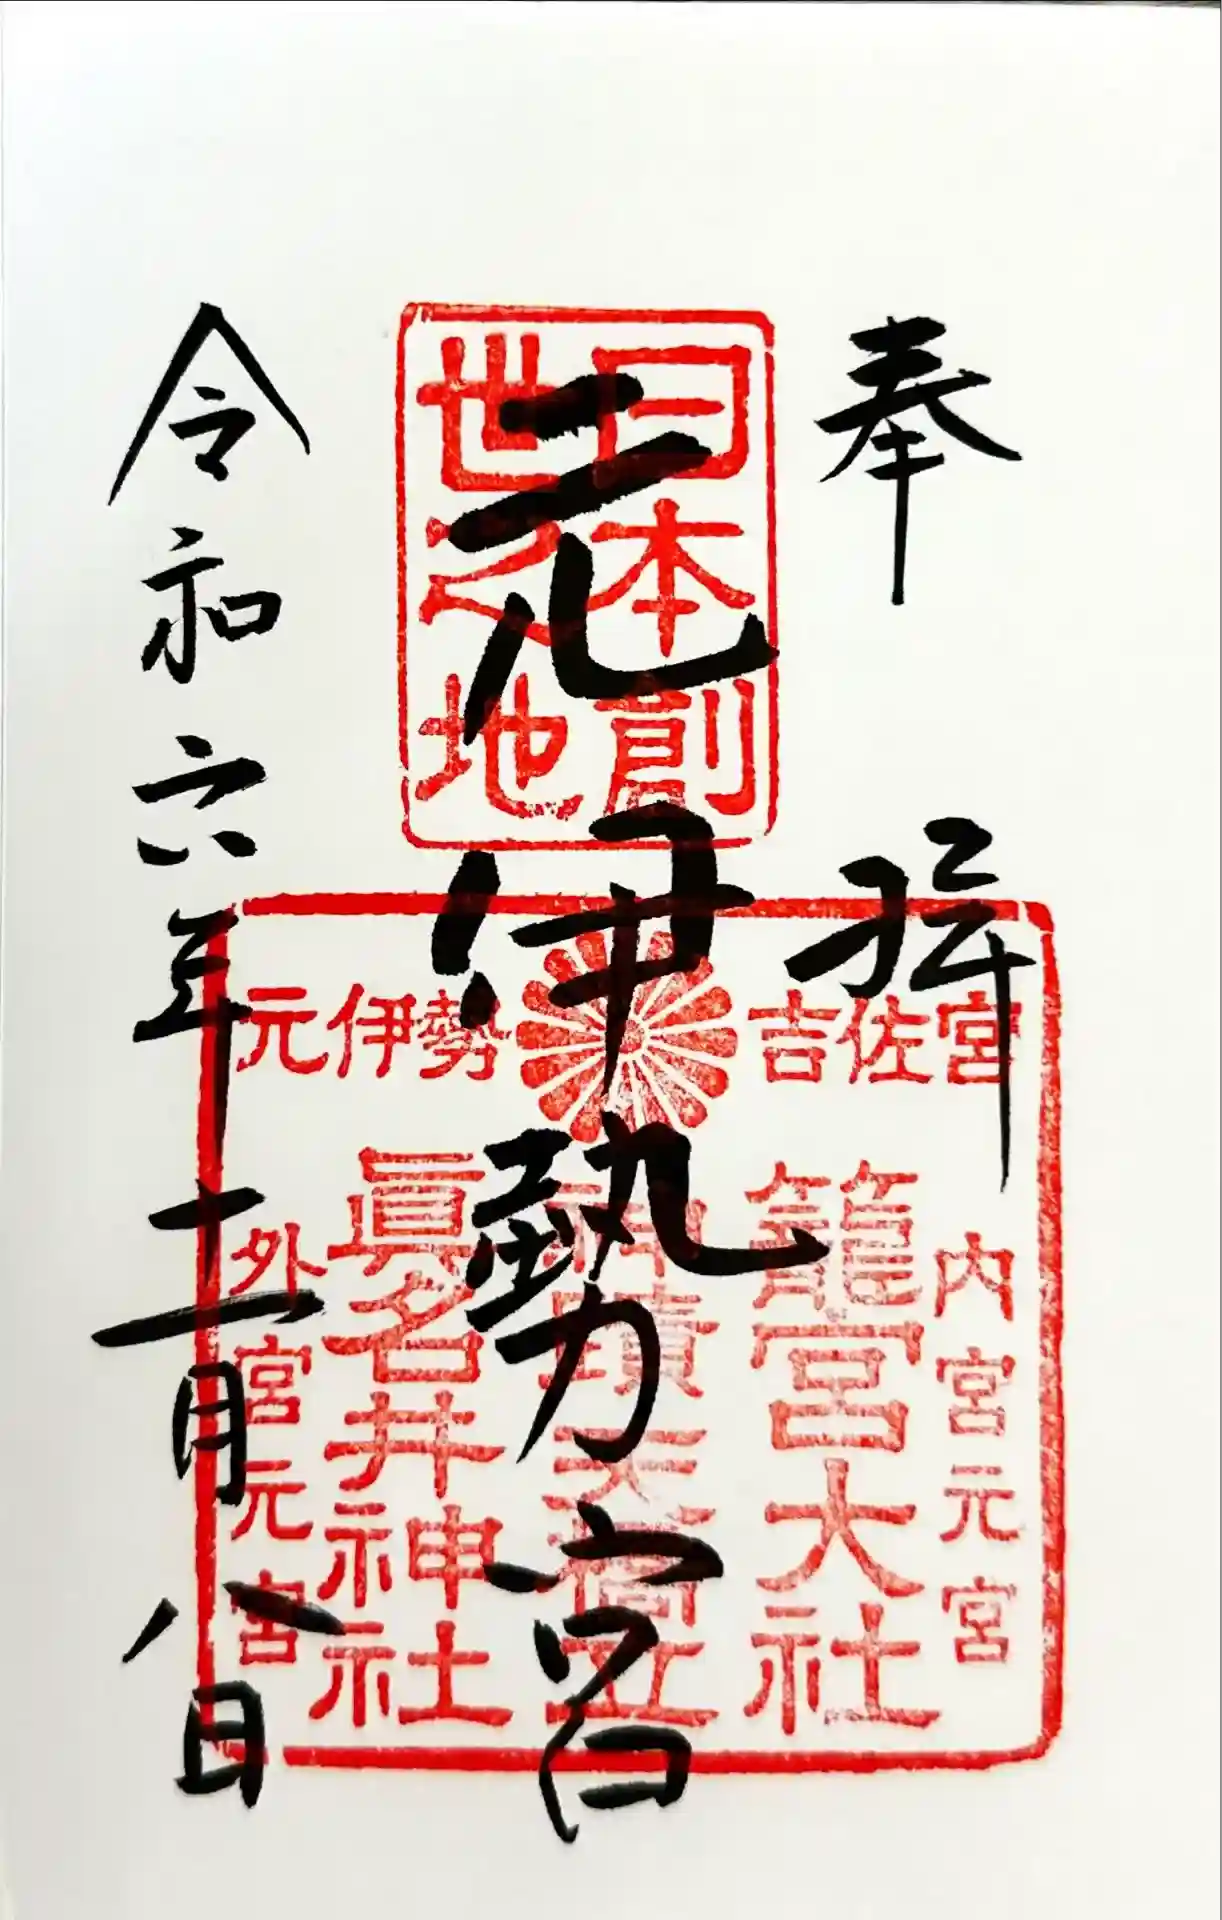 奉拝
元伊勢宮
令和六年十二月八日
日本創
世之地
元伊勢 吉佐宮
内宮元宮
籠宮大社
神蹟天橋立
眞名井神社
外宮元宮